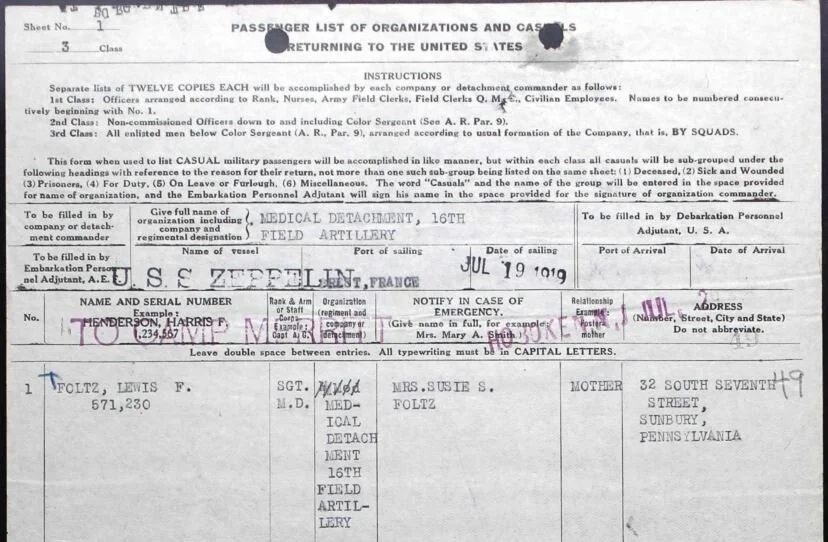 Sheet No. 1
3 Class
PASSENGER LIST OF ORGANIZATIONS AND CASUALS
RETURNING TO THE UNITED STATES
INSTRUCTIONS
Separate lists of TWELVE COPIES EACH will be accomplished by each company or detachment commander as follows:
1st Class: Officers arranged according to Rank, Nurses, Army Field Clerks, Field Clerks Q. M. C., Civilian Employees. Names to be numbered consecu-
tively beginning with No. 1.
2nd Class: Non-commissioned Officers down to and including Color Sergeant (See A. R. Par. 9).
3rd Class: All enlisted men below Color Sergeant (A. R., Par. 9), arranged according to usual formation of the Company, that is, BY SQUADS.
This form when used to list CASUAL military passengers will be accomplished in like manner, but within each class all casuals will be sub-grouped under the
following headings with reference to the reason for their return, not more than one such sub-group being listed on the same sheet: (1) Deceased, (2) Sick and Wounded
(3) Prisoners, (4) For Duty, (5) On Leave or Furlough, (6) Miscellaneous. The word "Casuals" and the name of the group will be entered in the space provided
for name of organization, and the Embarkation Personnel Adjutant will sign his name in the space provided for the signature of organization commander.
To be filled in by
company or detach-
ment commander
Give full name of
organization including
company and
regimental designation
MEDICAL DETACHMENT, 16TH
FIELD ARTILLERY
To be filled in by Debarkation Personnel
Adjutant, U. S. A.
To be filled in by
Embarkation Person-
nel Adjutant, A.E.
Name of vessel
U. S. S ZEPPELIN
Port of sailing
BREST, FRANCE
Date of sailing
JUL 19 1919
Port of Arrival
Date of Arrival
No.
NAME AND SERIAL NUMBER
Example:
HENDERSON, HARRIS F.
1,234,567
Rank & Arm
or Staff
Corps
Example:
Capt. A. C.
Organization
(regiment and
company or
detachment)
NOTIFY IN CASE OF
EMERGENCY.
(Give name in full, for example
Mrs. Mary A. Smith)
Relationship
Example:
Foster-
mother
ADDRESS
(Number, Street, City and State)
Do not abbreviate.
TO CAMP MERRITT
HOBOKEN N. J. JUL 2
Leave double space between entries. All typewriting must be in CAPITAL LETTERS.
1
FOLTZ, LEWIS F.
571,230
SGT.
M.D.
MED-
ICAL
DETACH
MENT
16TH
FIELD
ARTIL-
LERY
MRS.SUSIE S.
FOLTZ
MOTHER
32 SOUTH SEVENTH
STREET,
SUNBURY,
PENNSYLVANIA
49